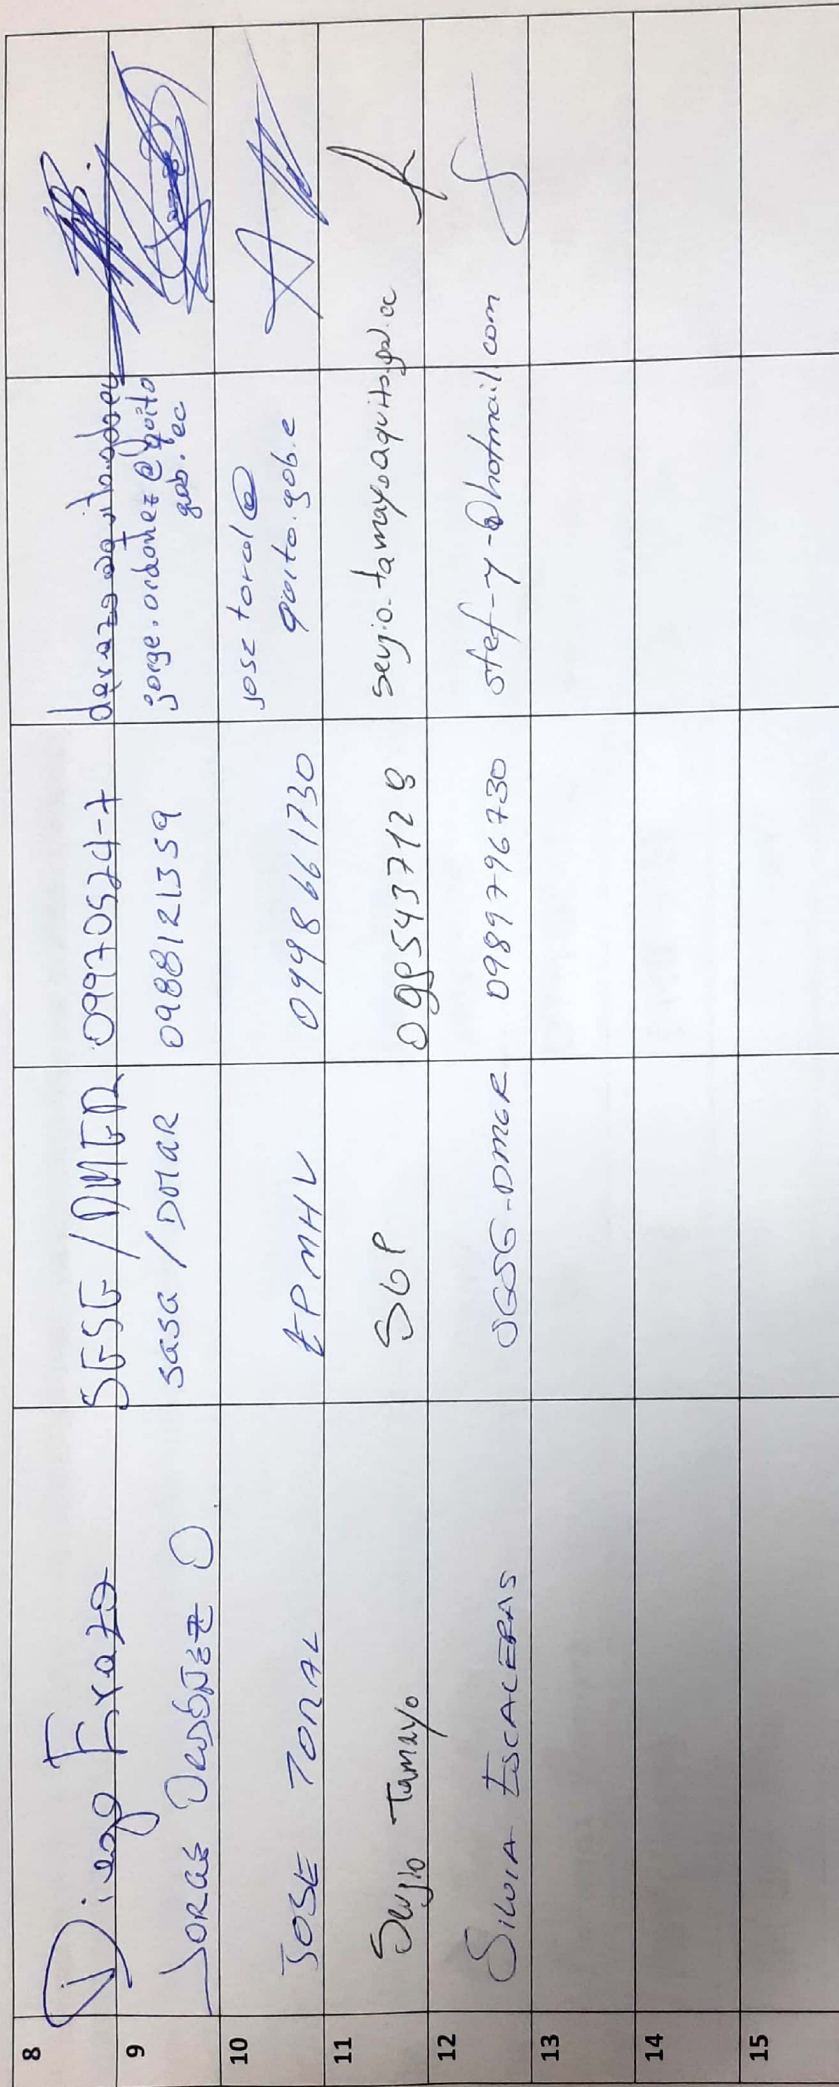 8 Diego Erazo SGSG/DMGR 099705247 derazo@quito.gob.ec
9 JORGE ORDÓÑEZ O. SGSG / DMGR 0988121359 jorge.ordonez@quito
gob.ec
10 JOSE TORAL EPMHV 0998661730 jose toral@
quito.gob.e
11 Sergio Tamayo SGP 0985437128 sergio.tamayo@quito.gob.ec
12 SILVIA ESCALERAS SGSG-DMGR 0989796730 stef-y-@hotmail.com
13
14
15